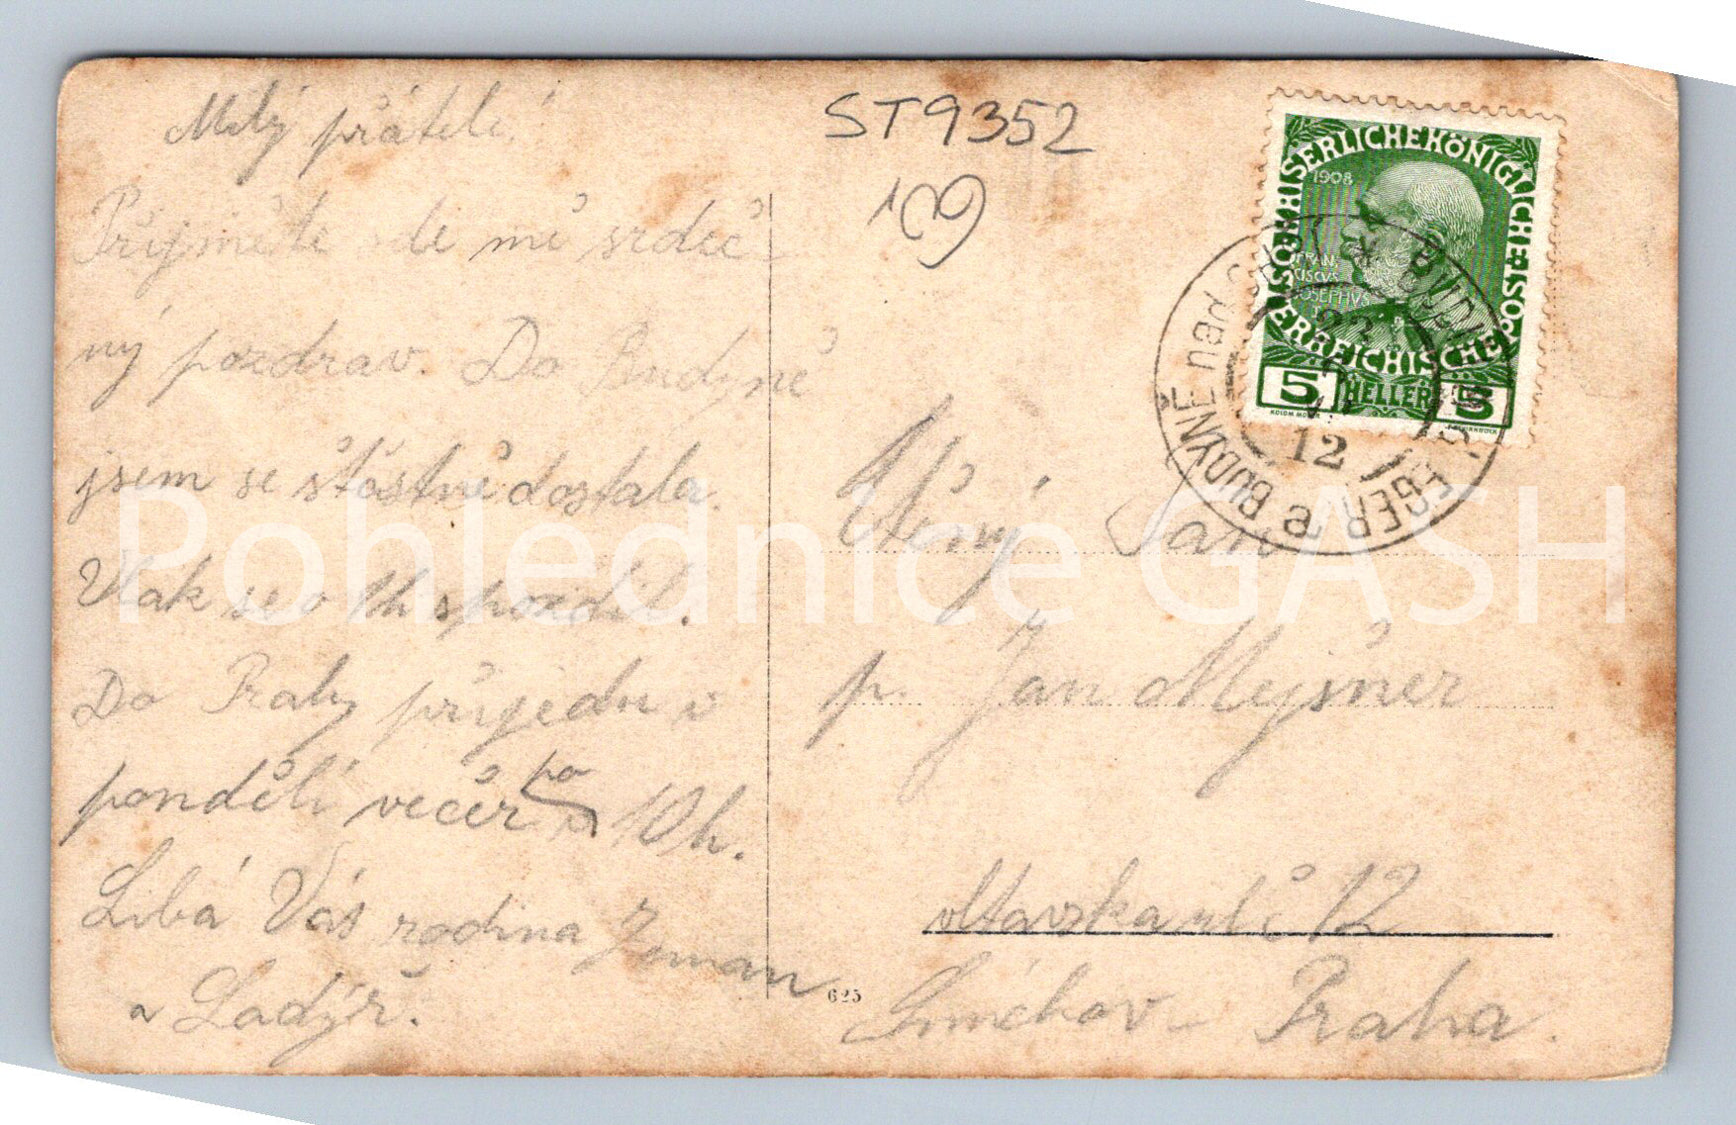 Milý přátelé!
Přijměte ode mě srdeč-
ný pozdrav. Do Budyně
jsem se šťastně dostala.
Vlak se o 1h spozdil.
Do Prahy přijedu v
pondělí večer po 10 h.
Líbá Vás rodina Zeman
a Ladýř.
ST9352
109
KAISERLICHEKÖNIGLICHE
ÖSTERREICHISCHE
1908
FRAN
CISCVS
JOSEPHVS
5 HELLER 5
BUDYNĚ nad
EGER
12
Ctěný Pan
p. Jan Mejsner
vltavska ul č 12
Smíchov - Praha.
625
Pohlednice GASH